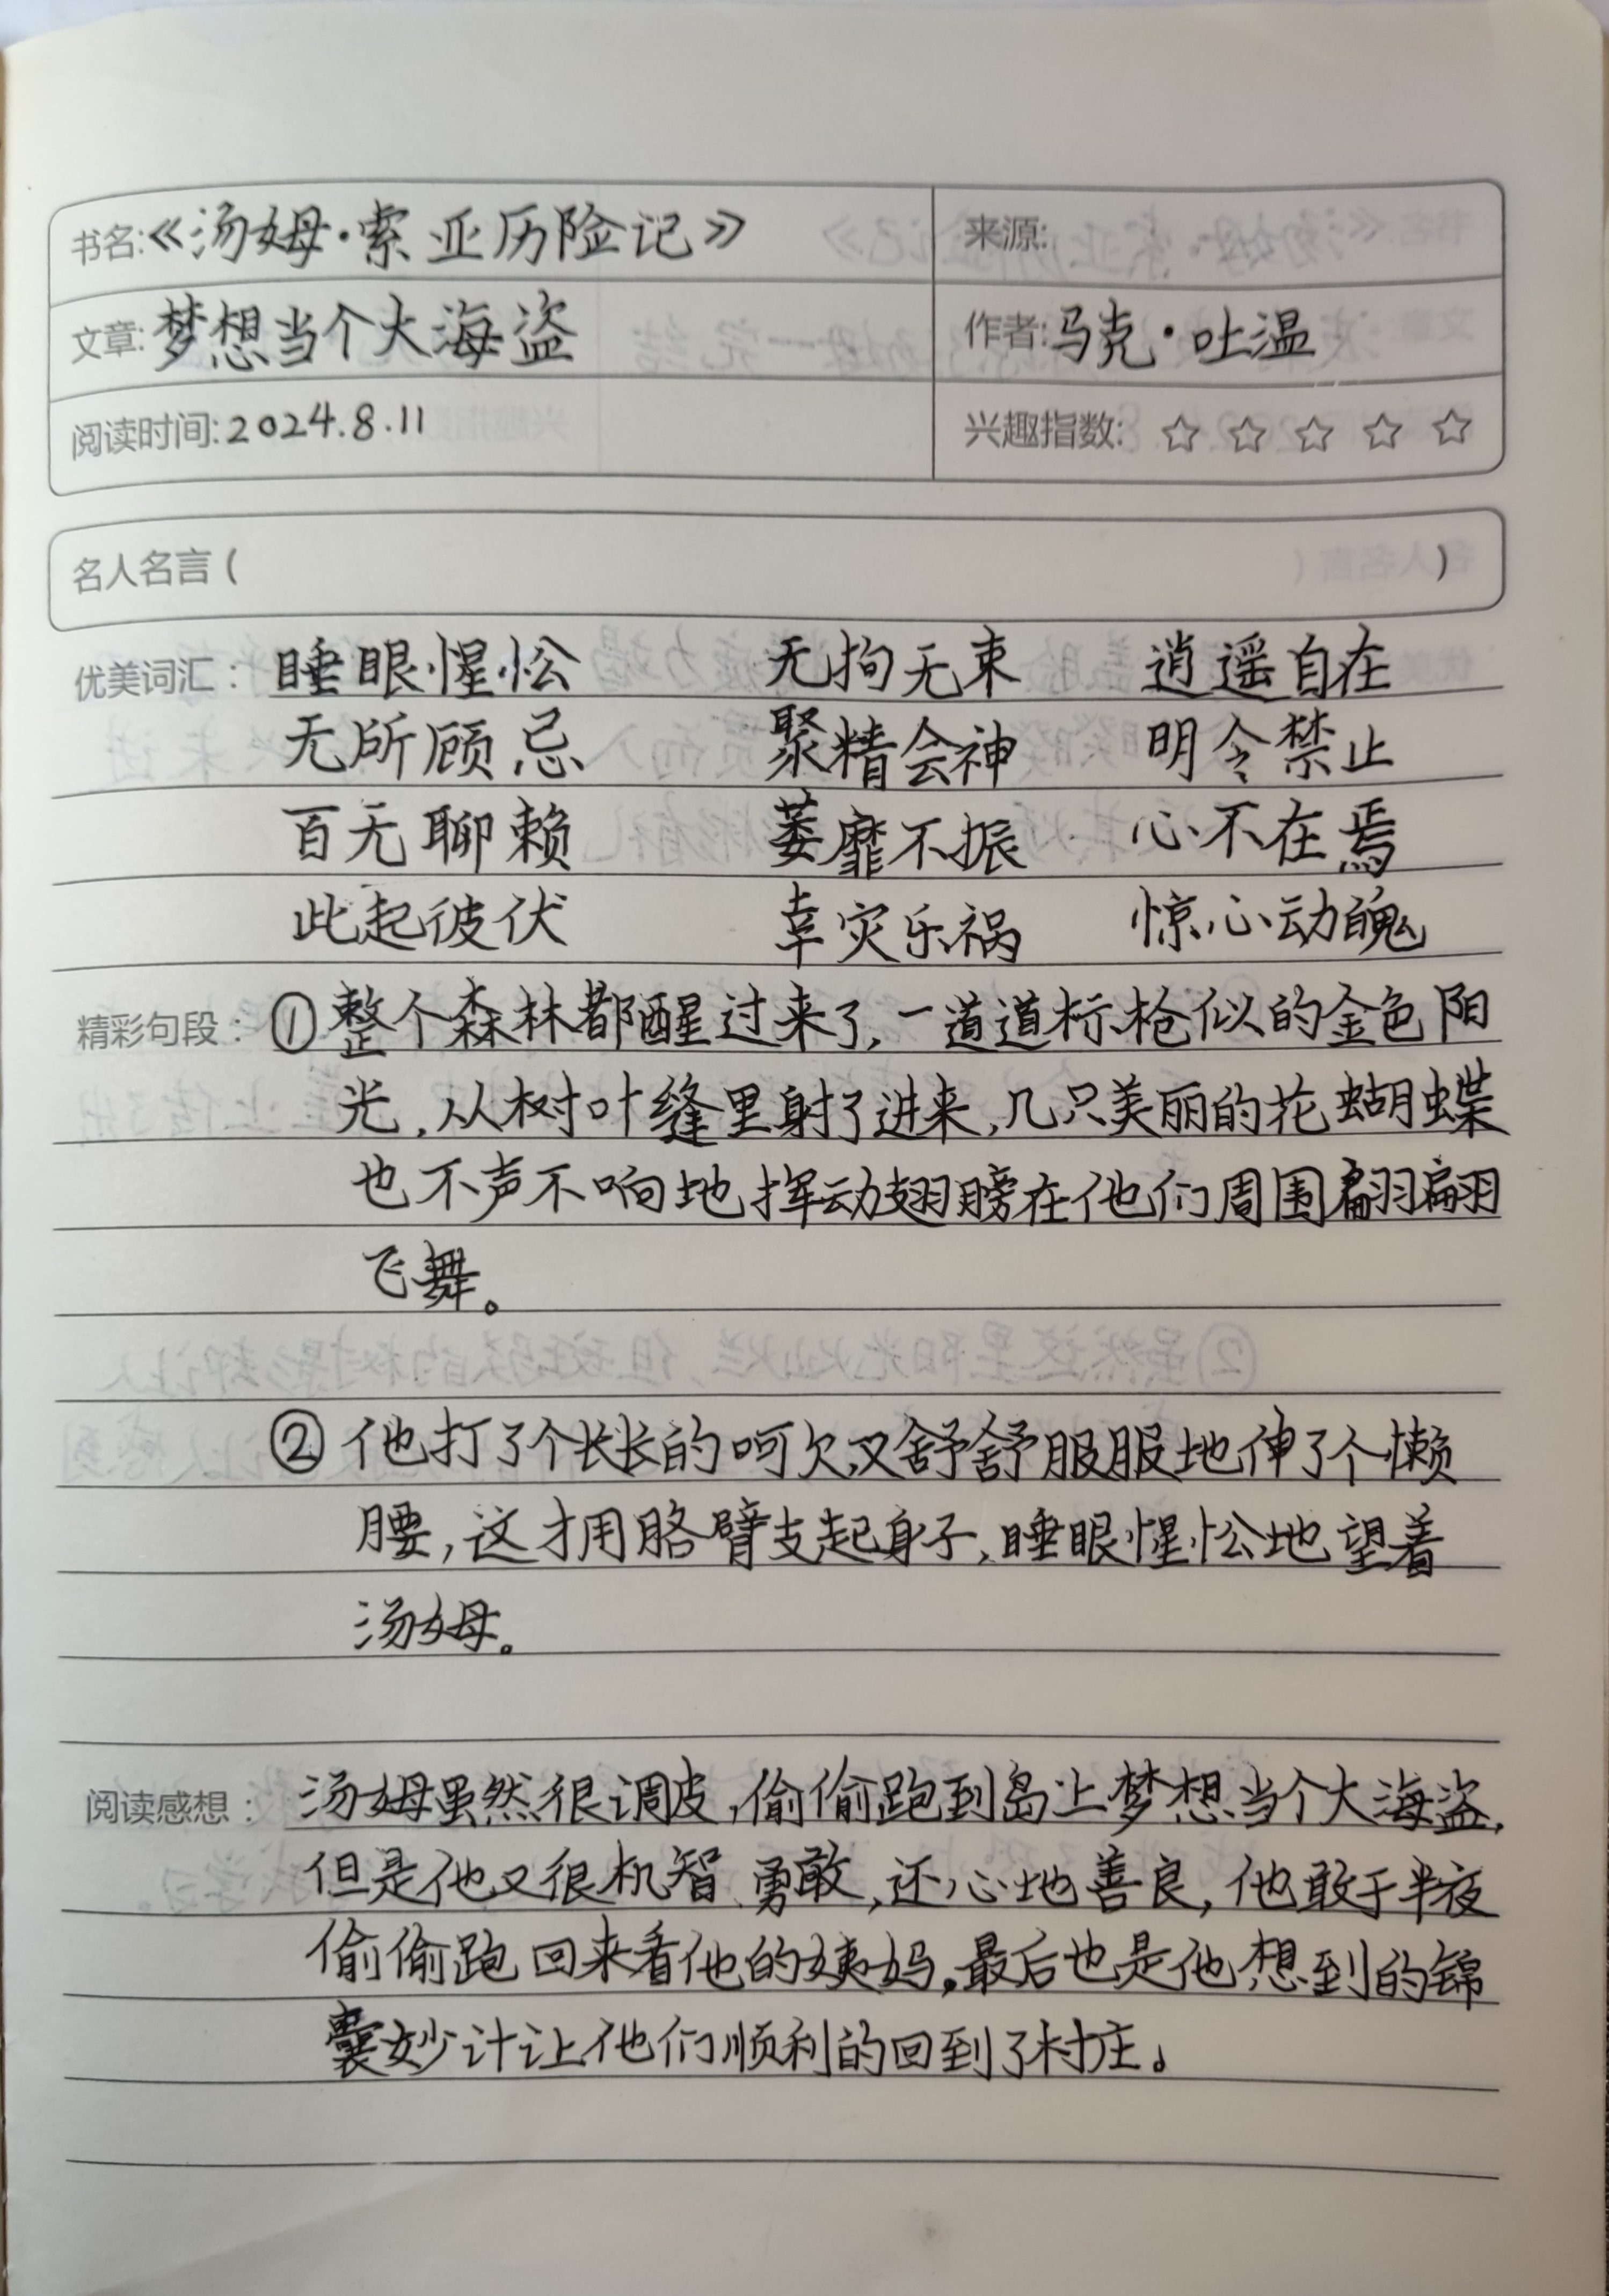 书名:《汤姆·索亚历险记》
来源:
文章:梦想当个大海盗
作者:马克·吐温
阅读时间:2024.8.11
兴趣指数: ☆ ☆ ☆ ☆ ☆
名人名言( )
优美词汇: 睡眼惺忪 无拘无束 逍遥自在
无所顾忌 聚精会神 明令禁止
百无聊赖 萎靡不振 心不在焉
此起彼伏 幸灾乐祸 惊心动魄
精彩句段: ①整个森林都醒过来了,一道道标枪似的金色阳
光,从树叶缝里射了进来,几只美丽的花蝴蝶
也不声不响地挥动翅膀在他们周围翩翩
飞舞。
②他打了个长长的呵欠,又舒舒服服地伸了个懒
腰,这才用胳臂支起身子,睡眼惺忪地望着
汤姆。
阅读感想: 汤姆虽然很调皮,偷偷跑到岛上梦想当个大海盗,
但是他又很机智、勇敢,还心地善良,他敢于半夜
偷偷跑回来看他的姨妈。最后也是他想到的锦
囊妙计让他们顺利的回到了村庄。